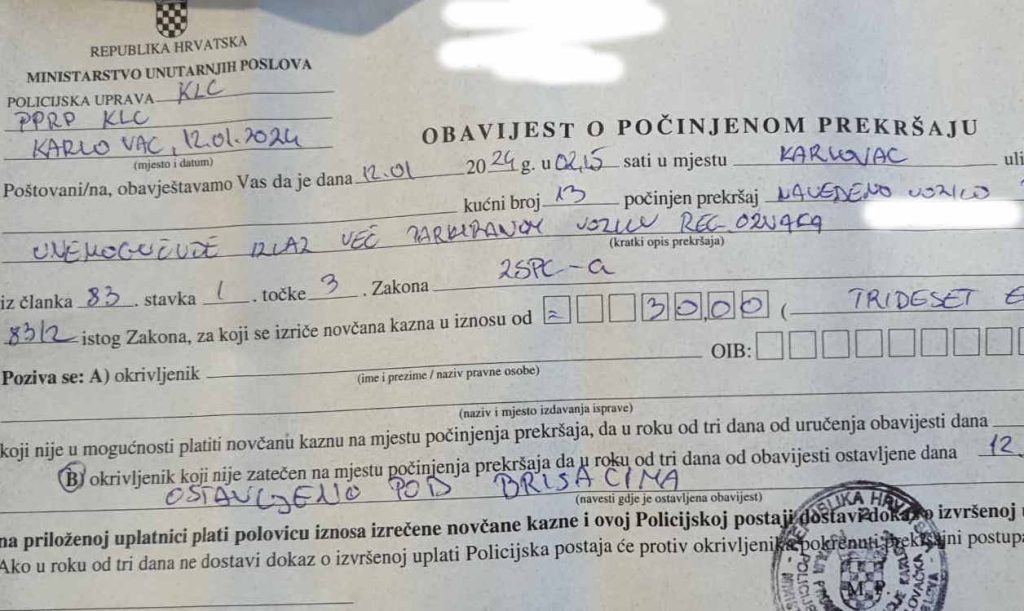 REPUBLIKA HRVATSKA
MINISTARSTVO UNUTARNJIH POSLOVA
POLICIJSKA UPRAVA KLC
PPRP KLC
KARLOVAC, 12.01.2024
(mjesto i datum)
OBAVIJEST O POČINJENOM PREKRŠAJU
Poštovani/na, obavještavamo Vas da je dana 12.01 2024 g. u 02,15 sati u mjestu KARLOVAC uli
kućni broj 13 počinjen prekršaj NAVEDENO VOZILO
IZLAZ VEĆ PARKIRANOM VOZILU REG. OZNAKA
(kratki opis prekršaja)
iz članka 83. stavka 1. točke 3. Zakona ZSPC-a
83/2 istog Zakona, za koji se izriče novčana kazna u iznosu od = 30,00 ( TRIDESET E
Poziva se: A) okrivljenik OIB:
(ime i prezime / naziv pravne osobe)
(naziv i mjesto izdavanja isprave)
koji nije u mogućnosti platiti novčanu kaznu na mjestu počinjenja prekršaja, da u roku od tri dana od uručenja obavijesti dana
B) okrivljenik koji nije zatečen na mjestu počinjenja prekršaja da u roku od tri dana od obavijesti ostavljene dana 12.
OSTAVLJENO POD BRISAČIMA
(navesti gdje je ostavljena obavijest)
na priloženoj uplatnici plati polovicu iznosa izrečene novčane kazne i ovoj Policijskoj postaji dostavi dokaz o izvršenoj u
Ako u roku od tri dana ne dostavi dokaz o izvršenoj uplati Policijska postaja će protiv okrivljenika pokrenuti prekršajni postupa
M.P.